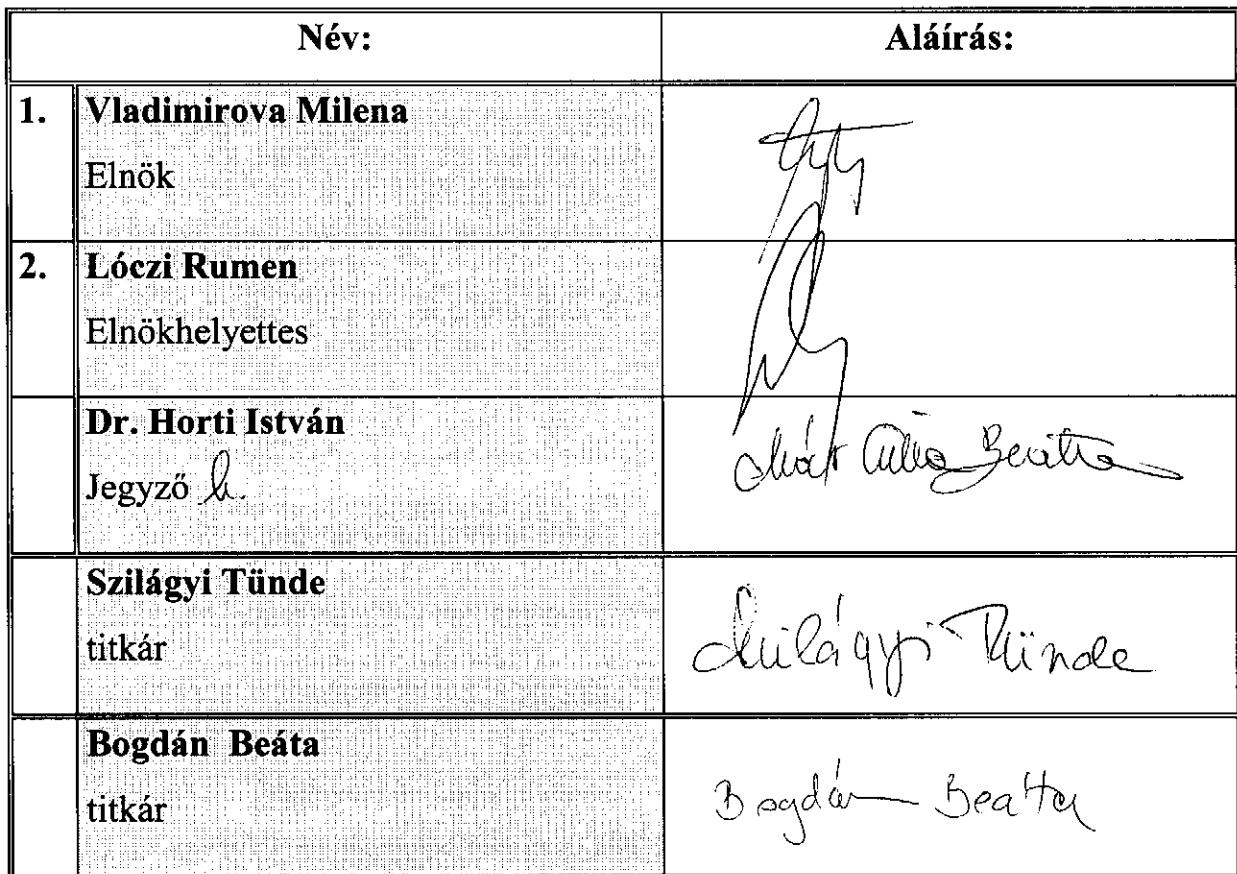 Név: Aláírás:
1. Vladimirova Milena
Elnök
2. Lóczi Rumen
Elnökhelyettes
Dr. Horti István
Jegyző h. Beáta
Szilágyi Tünde
titkár Szilágyi Tünde
Bogdán Beáta
titkár Bogdán Beáta